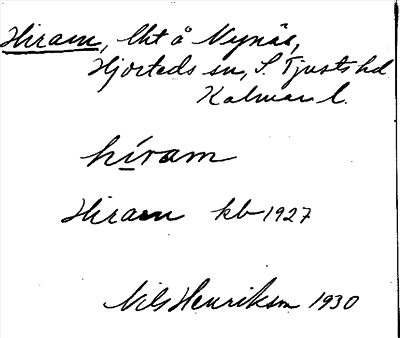 Hiram, lht å Nynäs,
Hjorteds sn, S. Tjusts hd
Kalmar l.
híram
Hiram kb 1927
Nils Henrikson 1930